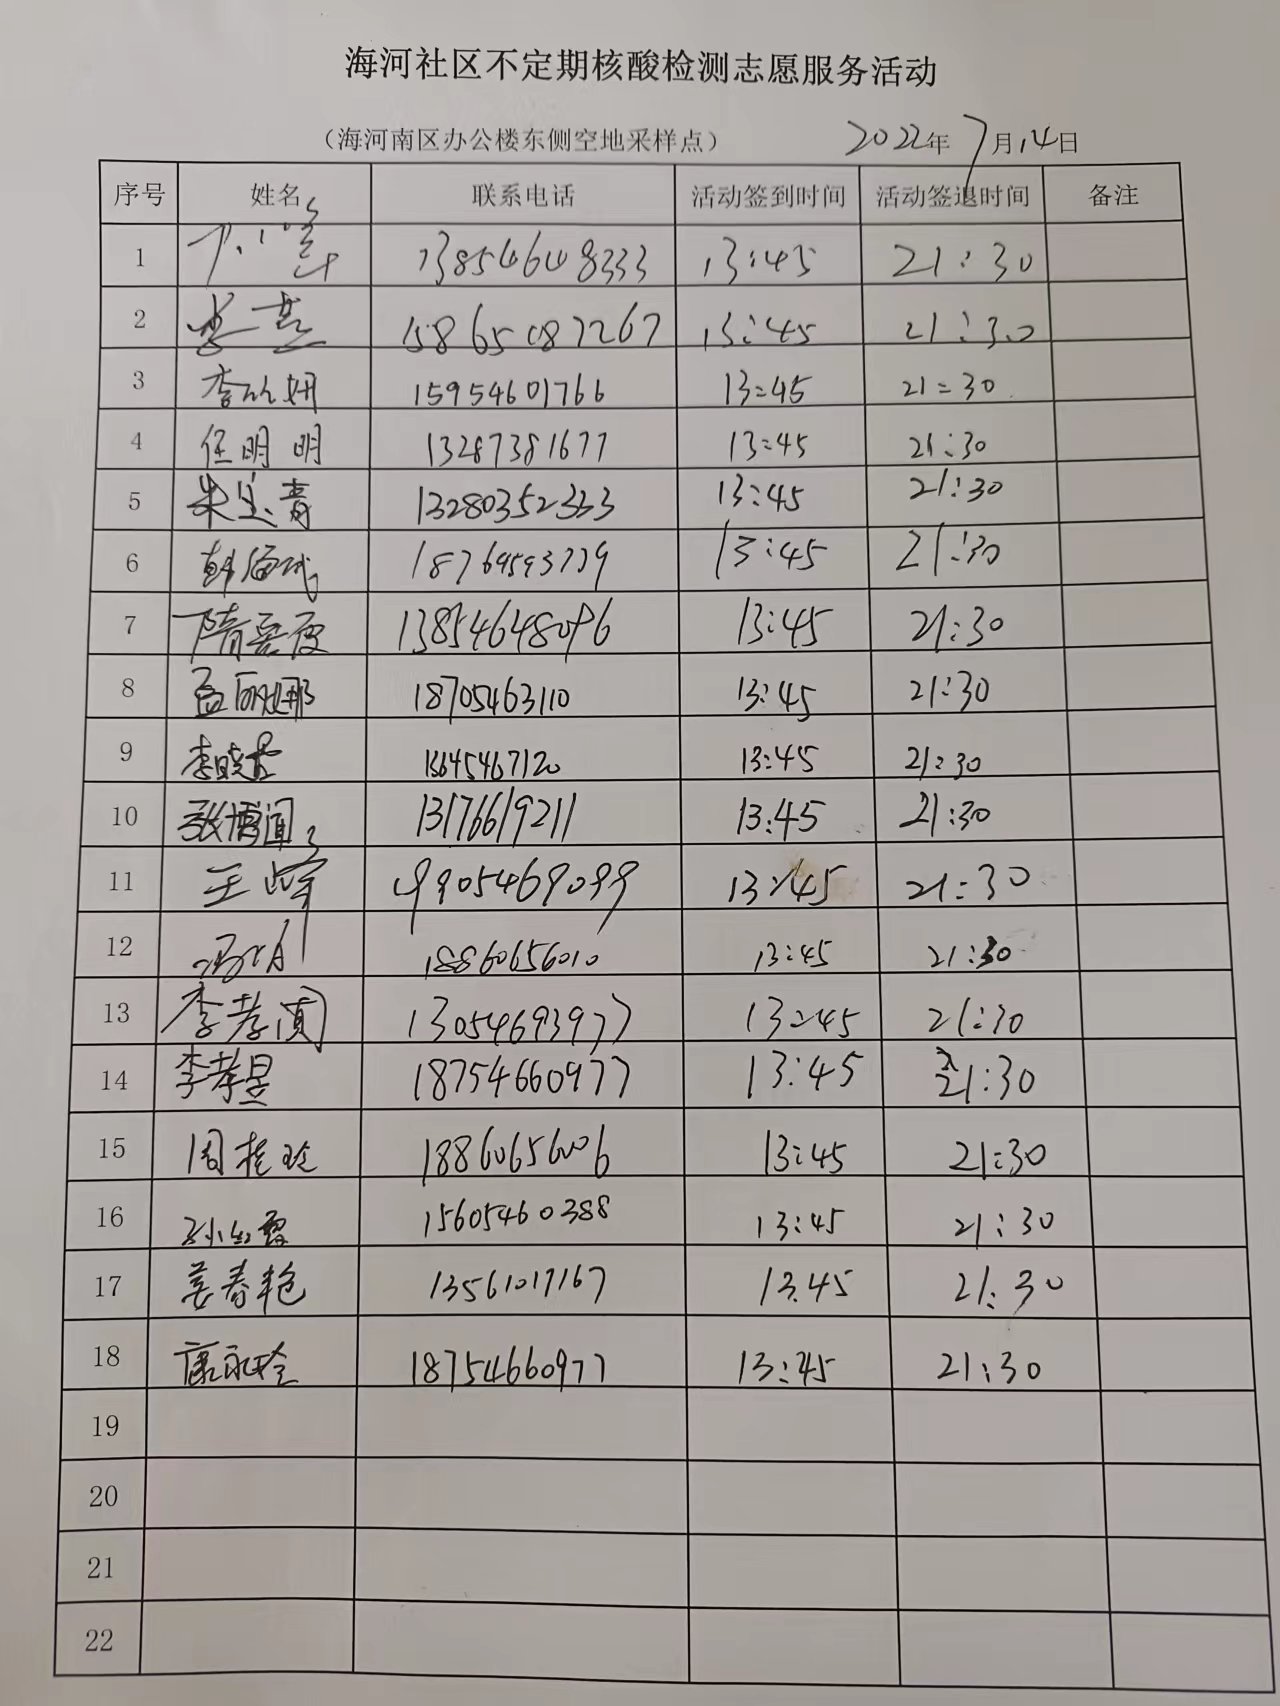 海河社区不定期核酸检测志愿服务活动
（海河南区办公楼东侧空地采样点） 2022年7月14日
序号 姓名 联系电话 活动签到时间 活动签退时间 备注
1 13854648333 13:45 21:30
2 15865087267 13:45 21:30
3 李 妍 15954601766 13:45 21:30
4 任明明 13287381677 13:45 21:30
5 朱 青 13280352333 13:45 21:30
6 韩 13:45 21:30
7 隋 13854648096 13:45 21:30
8 孟丽娜 18705463110 13:45 21:30
9 李晓 13645467120 13:45 21:30
10 张博闻 13176619211 13:45 21:30
11 王峰 13:45 21:30
12 18860656010 13:45 21:30
13 李孝 13054693977 13:45 21:30
14 李孝昱 18754660977 13:45 21:30
15 周桂玲 18860656006 13:45 21:30
16 孙 15605460388 13:45 21:30
17 姜春艳 13561017167 13:45 21:30
18 康永玲 18754660977 13:45 21:30
19
20
21
22